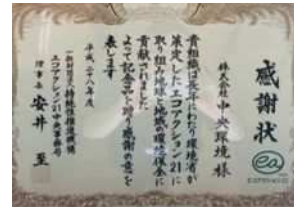 感謝状
株式会社中央環境様
貴組織は長年にわたり環境省が
策定したエコアクション21に
取り組み地球と地域の環境保全に
貢献されました
よって記念品を贈り感謝の意を
表します
平成二十八年度
一般財団法人持続性推進機構
エコアクション21中央事務局
理事長 安井 至
ea
エコアクション21